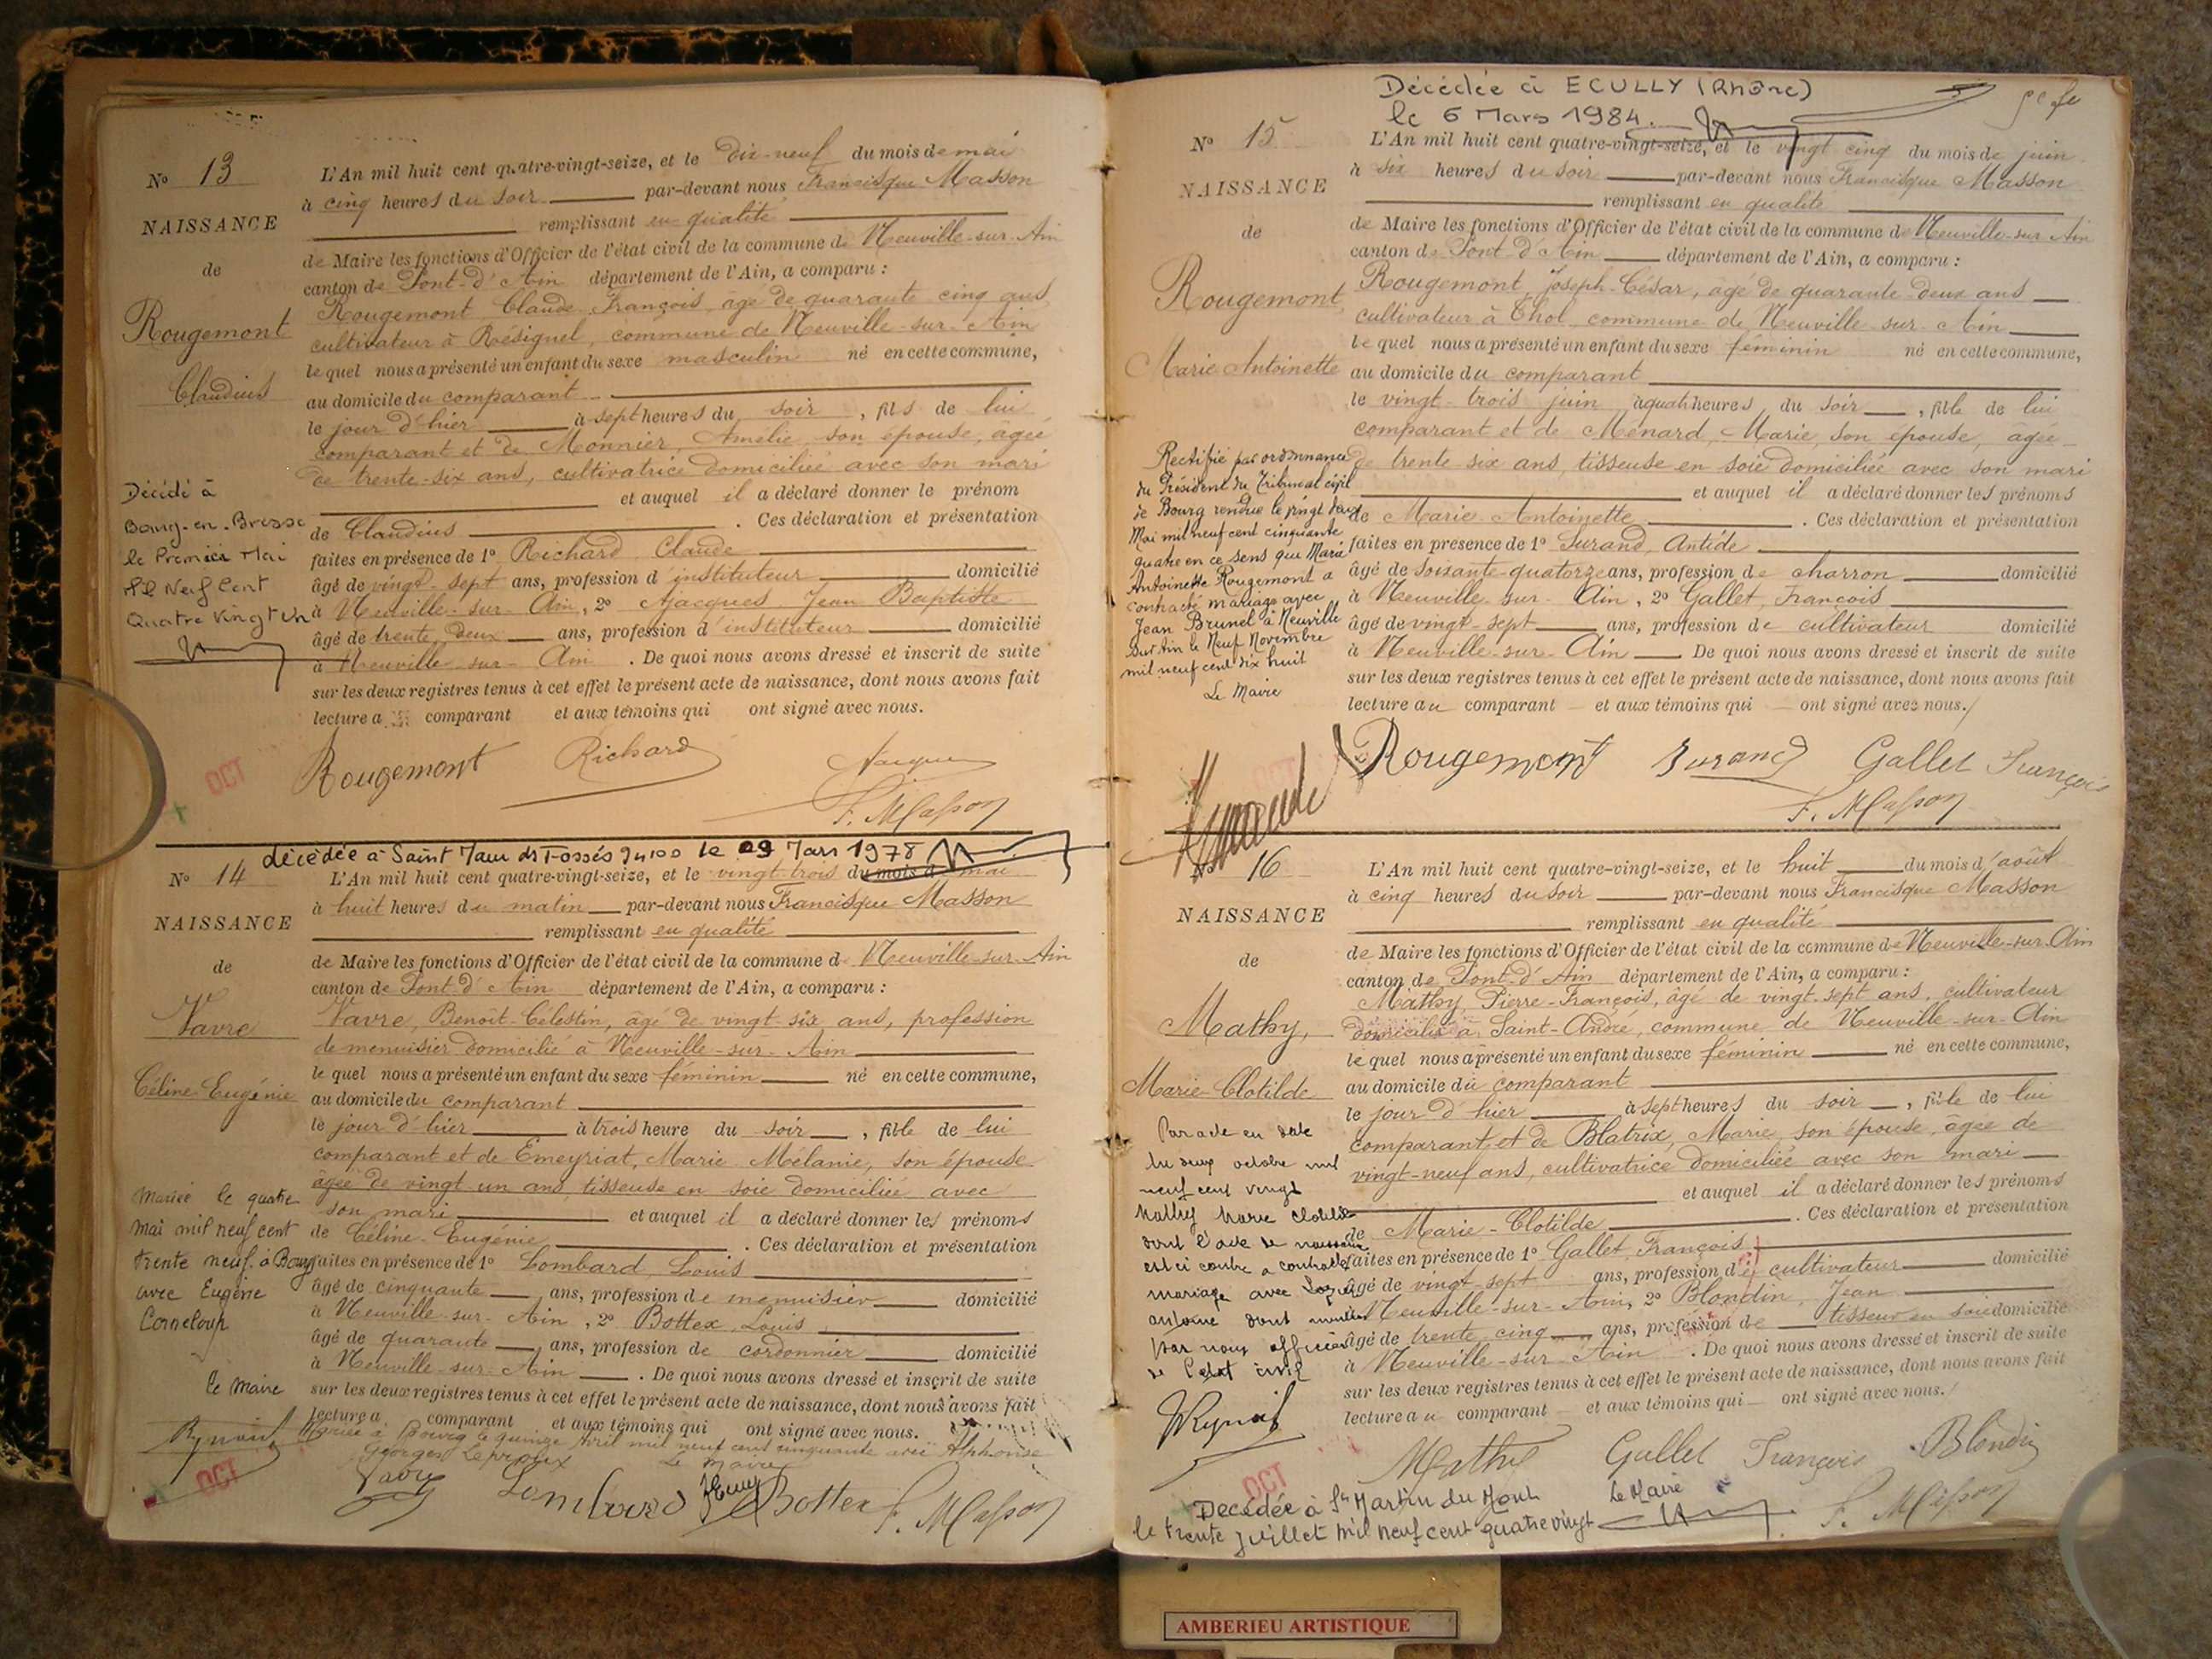 N° 13
NAISSANCE
de
Rougemont
Claudius
Décédé à
Bourg-en-Bresse
le Premier Mai
Mil Neuf Cent
Quatre Vingt Un
L'An mil huit cent quatre-vingt-seize, et le dix-neuf du mois de mai
à cinq heures du soir par-devant nous Francisque Masson
remplissant en qualité
de Maire les fonctions d'Officier de l'état civil de la commune de Neuville-sur-Ain
canton de Pont-d'Ain département de l'Ain, a comparu :
Rougemont Claude François, âgé de quarante cinq ans
cultivateur à Résignel, commune de Neuville-sur-Ain
lequel nous a présenté un enfant du sexe masculin né en cette commune,
au domicile du comparant
le jour d'hier à sept heures du soir, fils de lui
comparant et de Monnier, Amélie, son épouse, âgée
de trente-six ans, cultivatrice domiciliée avec son mari
et auquel il a déclaré donner le prénom
de Claudius. Ces déclaration et présentation
faites en présence de 1° Richard Claude
âgé de vingt-sept ans, profession d'instituteur domicilié
à Neuville-sur-Ain, 2° Jacques Jean Baptiste
âgé de trente deux ans, profession d'instituteur domicilié
à Neuville-sur-Ain. De quoi nous avons dressé et inscrit de suite
sur les deux registres tenus à cet effet le présent acte de naissance, dont nous avons fait
lecture a comparant et aux témoins qui ont signé avec nous.
Rougemont Richard Jacques
F. Masson
OCT
décédée à Saint Maur ds Fossés 94100 le 09 Mars 1978
N° 14
NAISSANCE
de
Vavre
Céline Eugénie
Mariée le quatre
mai mil neuf cent
trente neuf à Bourg
avec Eugène
Corneloup
Le Maire
L'An mil huit cent quatre-vingt-seize, et le vingt-trois du mois de mai
à huit heures du matin par-devant nous Francisque Masson
remplissant en qualité
de Maire les fonctions d'Officier de l'état civil de la commune de Neuville-sur-Ain
canton de Pont-d'Ain département de l'Ain, a comparu :
Vavre, Benoît-Célestin, âgé de vingt-six ans, profession
de menuisier domicilié à Neuville-sur-Ain
lequel nous a présenté un enfant du sexe féminin né en cette commune,
au domicile du comparant
le jour d'hier à trois heure du soir, fille de lui
comparant et de Emeyriat, Marie Mélanie, son épouse
âgée de vingt un ans, tisseuse en soie domiciliée avec
son mari et auquel il a déclaré donner les prénoms
de Céline-Eugénie. Ces déclaration et présentation
faites en présence de 1° Lombard Louis
âgé de cinquante ans, profession de menuisier domicilié
à Neuville-sur-Ain, 2° Bottex, Louis
âgé de quarante ans, profession de cordonnier domicilié
à Neuville-sur-Ain. De quoi nous avons dressé et inscrit de suite
sur les deux registres tenus à cet effet le présent acte de naissance, dont nous avons fait
lecture a comparant et aux témoins qui ont signé avec nous.
Mariée à Bourg le quinze Avril mil neuf cent cinquante Alphonse
Georges Le Maire
Vavre Lombard Bottex F. Masson
OCT
Décédée à ECULLY (Rhône)
le 6 Mars 1984.
N° 15
NAISSANCE
de
Rougemont
Marie Antoinette
Rectifié par ordonnance
du Président du Tribunal civil
de Bourg rendue le vingt deux
Mai mil neuf cent cinquante
quatre en ce sens que Marie
Antoinette Rougemont a
contracté mariage avec
Jean Brunel à Neuville
sur Ain le Neuf Novembre
mil neuf cent dix huit
Le Maire
L'An mil huit cent quatre-vingt-seize, et le vingt cinq du mois de juin
à six heures du soir par-devant nous Francisque Masson
remplissant en qualité
de Maire les fonctions d'Officier de l'état civil de la commune de Neuville-sur-Ain
canton de Pont-d'Ain département de l'Ain, a comparu :
Rougemont, Joseph-César, âgé de quarante-deux ans
cultivateur à Thol commune de Neuville-sur-Ain
lequel nous a présenté un enfant du sexe féminin né en cette commune,
au domicile du comparant
le vingt-trois juin à quatre heures du soir, fille de lui
comparant et de Ménard, Marie, son épouse, âgée
de trente six ans, tisseuse en soie domiciliée avec son mari
et auquel il a déclaré donner les prénoms
de Marie-Antoinette. Ces déclaration et présentation
faites en présence de 1° Surand, Antide
âgé de soixante-quatorze ans, profession de charron domicilié
à Neuville-sur-Ain, 2° Gallet, François
âgé de vingt-sept ans, profession de cultivateur domicilié
à Neuville-sur-Ain De quoi nous avons dressé et inscrit de suite
sur les deux registres tenus à cet effet le présent acte de naissance, dont nous avons fait
lecture au comparant et aux témoins qui ont signé avec nous.
Rougemont Surand Gallet François
F. Masson
N° 16
NAISSANCE
de
Mathy,
Marie-Clotilde
Par acte en date
du deux octobre mil
neuf cent vingt
Mathy Marie Clotilde
dont l'acte de naissance
est ci contre a contracté
mariage avec
Antoine dont mention
par nous officier
de l'état civil
L'An mil huit cent quatre-vingt-seize, et le huit du mois d'août
à cinq heures du soir par-devant nous Francisque Masson
remplissant en qualité
de Maire les fonctions d'Officier de l'état civil de la commune de Neuville-sur-Ain
canton de Pont-d'Ain département de l'Ain, a comparu :
Mathy, Pierre-François, âgé de vingt-sept ans, cultivateur
domicilié à Saint-André, commune de Neuville-sur-Ain
lequel nous a présenté un enfant du sexe féminin né en cette commune,
au domicile du comparant
le jour d'hier à sept heures du soir, fille de lui
comparant et de Blatrix, Marie, son épouse, âgée de
vingt-neuf ans, cultivatrice domiciliée avec son mari
et auquel il a déclaré donner les prénoms
de Marie-Clotilde. Ces déclaration et présentation
faites en présence de 1° Gallet, François
âgé de vingt-sept ans, profession de cultivateur domicilié
à Neuville-sur-Ain, 2° Blondin, Jean
âgé de trente cinq ans, profession de tisseur en soie domicilié
à Neuville-sur-Ain. De quoi nous avons dressé et inscrit de suite
sur les deux registres tenus à cet effet le présent acte de naissance, dont nous avons fait
lecture au comparant et aux témoins qui ont signé avec nous.
Mathy Gallet François Blondin
F. Masson
OCT
Décédée à St Martin du Mont Le Maire
le trente juillet mil neuf cent quatre vingt
AMBERIEU ARTISTIQUE